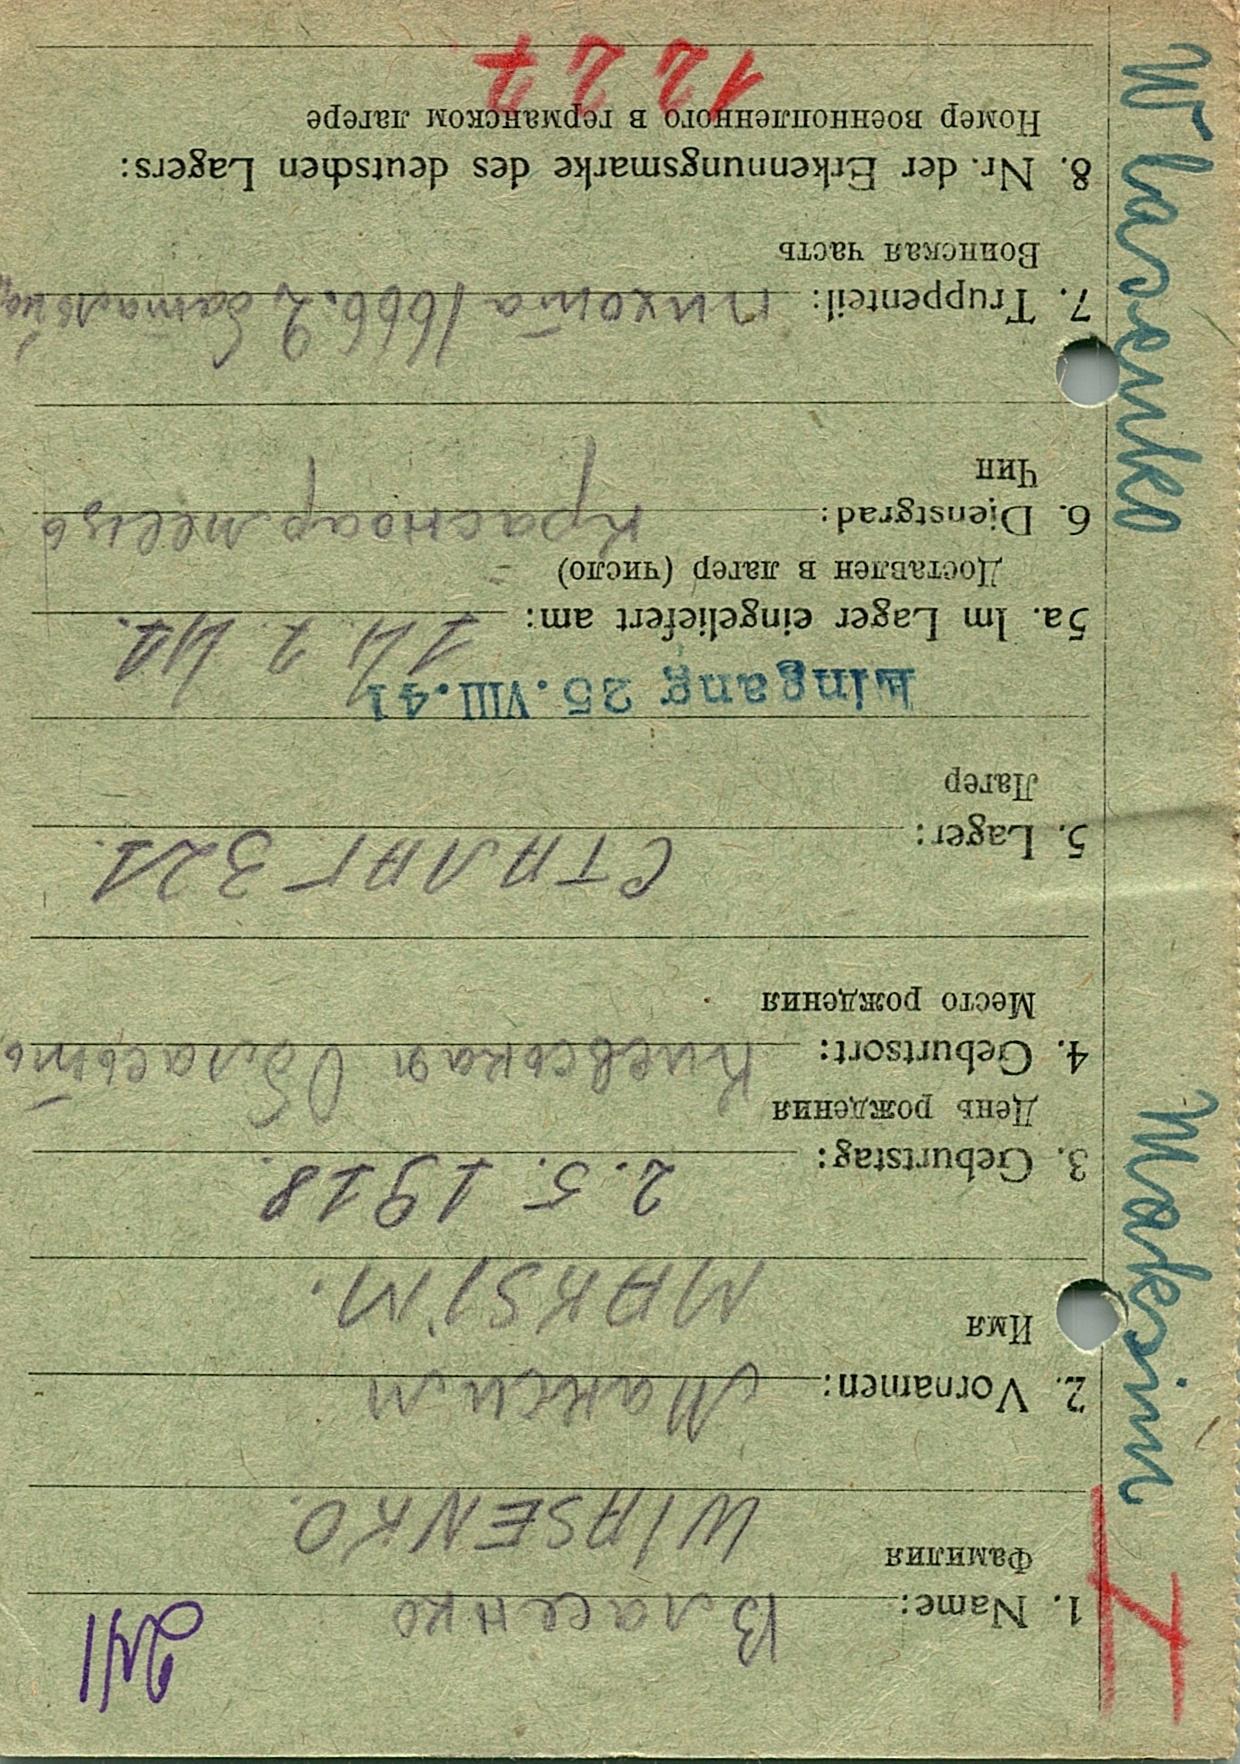 241
1. Name: Власенко
Фамилия
WlASENKO.
2. Vornamen: Максим
Имя
MAKSIM.
3. Geburtstag: 2.5.1918.
День рождения
4. Geburtsort: Киевськая Область
Место рождения
5. Lager: СТАЛАГ 321.
Лагер
Eingang 25.VIII.41
5a. Im Lager eingeliefert am: 14 7 41.
Доставлен в лагер (число)
6. Dienstgrad: Красноармеець
Чин
7. Truppenteil: пихота
Воинская часть
8. Nr. der Erkennungsmarke des deutschen Lagers:
Номер военнопленного в германском лагере
1227
Wlasenko Maksim